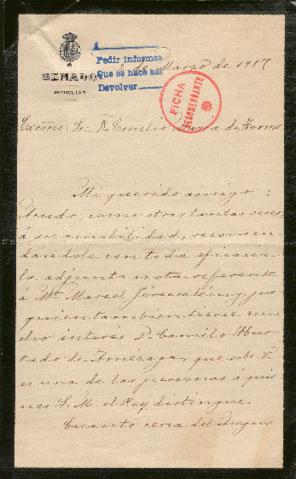 SENADO
PARTICULAR
A
Pedir informes
Que se haga así
Devolver
FICHA
Marzo de 1917
Excmo: Sr. Dn. Emilio María de Torres
Mi querido amigo:
Acudo, como otras tantas veces
á su amabilidad, recomen-
dándole con toda eficacia
la adjunta nota referente
á Mr. Marcel Jérusalémy, por
quien también tiene mu-
cho interés D. Camilo Hur-
tado de Amézaga, que sabe V.
es una de las personas á quie-
nes S. M. el Rey distingue.
Cuanto cerca del Augus